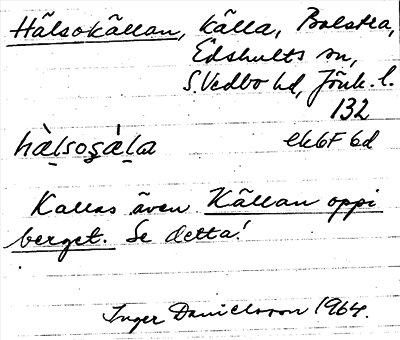 Hälsokällan, källa, Bolstra,
Edshults sn,
S. Vedbo hd, Jönk. l.
132
hàlsoşála ek6F6d
Kallas även Källan oppi
berget. Se detta!
Inger Danielsson 1964.